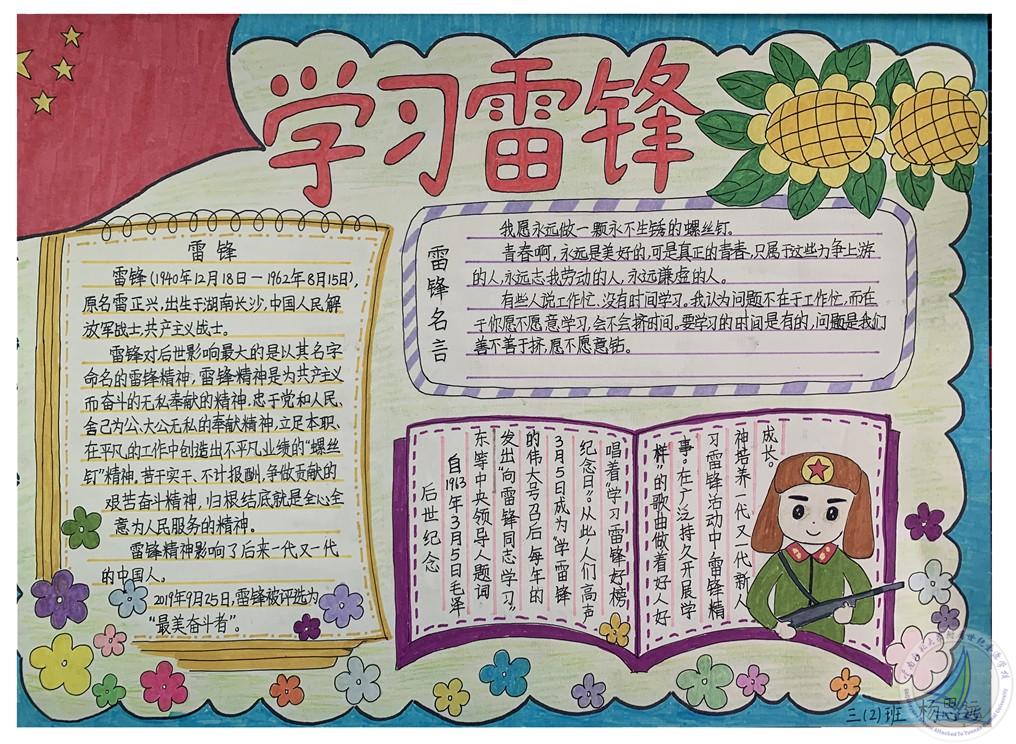 学习雷锋
雷锋
雷锋(1940年12月18日—1962年8月15日),
原名雷正兴,出生于湖南长沙,中国人民解
放军战士,共产主义战士。
雷锋对后世影响最大的是以其名字
命名的雷锋精神,雷锋精神是为共产主义
而奋斗的无私奉献的精神,忠于党和人民、
舍己为公、大公无私的奉献精神,立足本职、
在平凡的工作中创造出不平凡业绩的“螺丝
钉”精神。苦干实干、不计报酬,争做贡献的
艰苦奋斗精神,归根结底就是全心全
意为人民服务的精神。
雷锋精神影响了后来一代又一代
的中国人。
2019年9月25日,雷锋被评选为
“最美奋斗者”。
雷锋名言
我愿永远做一颗永不生锈的螺丝钉。
青春啊,永远是美好的,可是真正的青春,只属于这些力争上游
的人,永远志我劳动的人,永远谦虚的人。
有些人说工作忙、没有时间学习,我认为问题不在于工作忙,而在
于你愿不愿意学习,会不会挤时间,要学习的时间是有的,问题是我们
善不善于挤,愿不愿意钻。
后世纪念
自1963年3月5日毛泽
东等中央领导人题词
发出“向雷锋同志学习”
的伟大号召后,每年的
3月5日成为“学雷锋
纪念日”。从此,人们高声
唱着“学习雷锋好榜
样”的歌曲做着好人好
事。在广泛持久开展学
习雷锋活动中,雷锋精
神培养一代又一代新人
成长。
三(2)班 杨思远